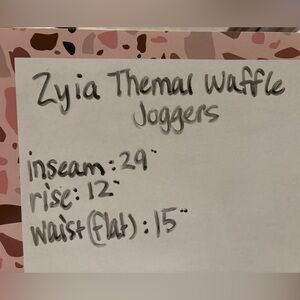 Zyia Themal Waffle
Joggers
inseam: 29"
rise: 12"
waist(flat): 15"